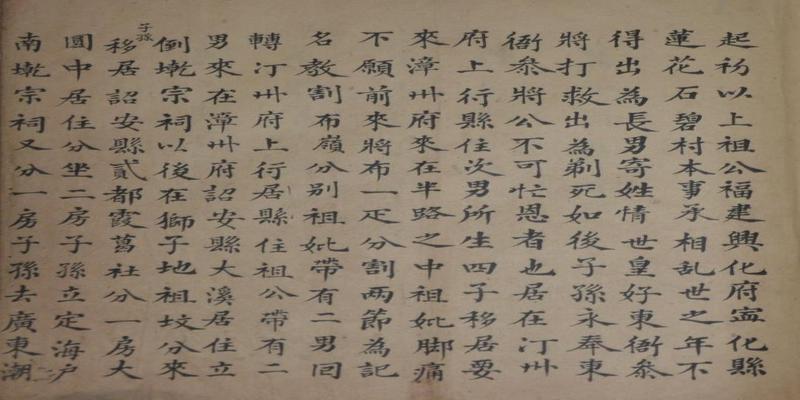 起初以上祖公福建興化府寗化縣
蓮花石碧村本事承相乱世之年不
得出為長男寄姓情世皇好東衙叅
將打救出為剃死如後子孫永奉東
衙叅將公不可忙恩者也居在汀州
府上行縣住次男所生四子移居要
來漳州府來在半路之中祖妣脚痛
不願前來將布一疋分割两節為記
名教割布嶺分别祖妣帶有二男回
轉汀州府上行居縣住祖公帶有二
男來在漳州府詔安縣大溪居住立
倒墘宗祠以後在獅子地祖坟分來
子孫
移居詔安縣貳都霞葛社分一房大
圓中居住分坐二房子孫立定海户
南墘宗祠又分一房子孫去廣東潮